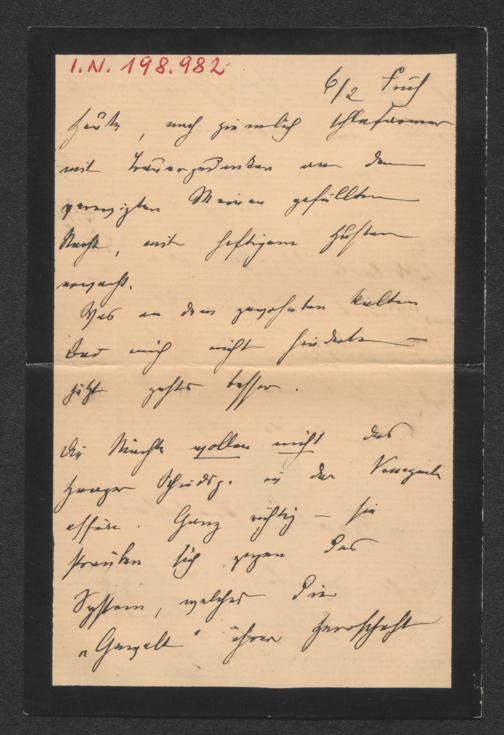 I.N. 198.982
6/2 Früh
Heute, nach ziemlich schlafarmer
mit Trauergedanken an den
verewigten Meinen gefüllten
Nacht, mit heftigem Husten
erwacht.
Was an dem gewohnten kalten
Bad mich nicht hinderte –
jetzt gehts besser.
Die Mächte wollen nicht das
Haager Schiedsg. in der Venezuela
affäre. Ganz richtig – sie
sträuben sich gegen das
System, welches die
„Gewalt" ihrer Herrschaft